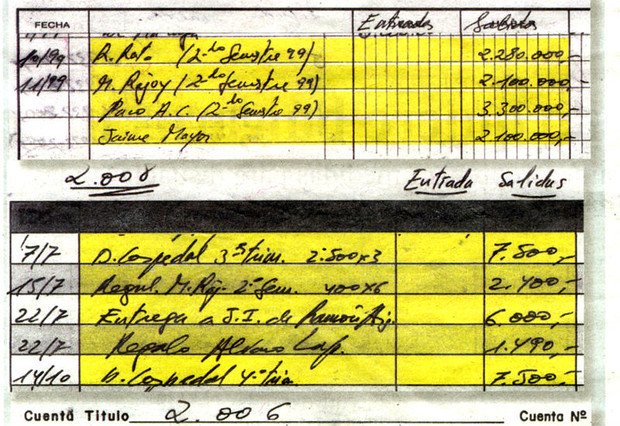 FECHA Entradas Salidas
10/99 R. Rato (2º Semestre 99) 2.280.000,-
11/99 M. Rajoy (2º Semestre 99) 2.100.000,-
Paco A.C. (2º Semestre 99) 3.300.000,-
Jaime Mayor 2.100.000,-
2.008 Entrada Salidas
7/7 D. Cospedal 3º trim. 2.500x3 7.500,-
15/7 M. Raj. 2º Sem. 400x6 2.400,-
22/7 Entrega a J.I. de 6.000,-
22/7 Regalo Alvaro Lap. 1.490,-
14/10 D. Cospedal 4º trim 7.500,-
Cuenta Título 2.006 Cuenta Nº